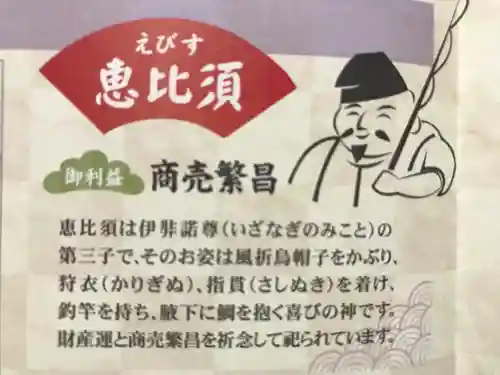 えびす
恵比須
御利益
商売繁昌
恵比須は伊弉諾尊(いざなぎのみこと)の
第三子で、そのお姿は風折烏帽子をかぶり、
狩衣(かりぎぬ)、指貫(さしぬき)を着け、
釣竿を持ち、腋下に鯛を抱く喜びの神です。
財産運と商売繁昌を祈念して祀られています。